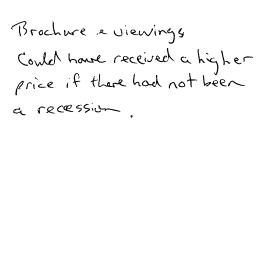 Brochure & viewings
Could have received a higher
price if there had not been
a recession.